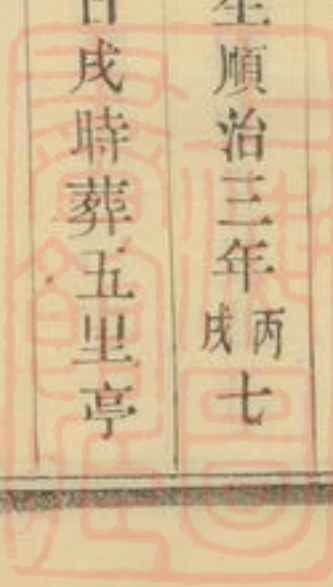 生順治三年丙戌七
日戌時葬五里亭